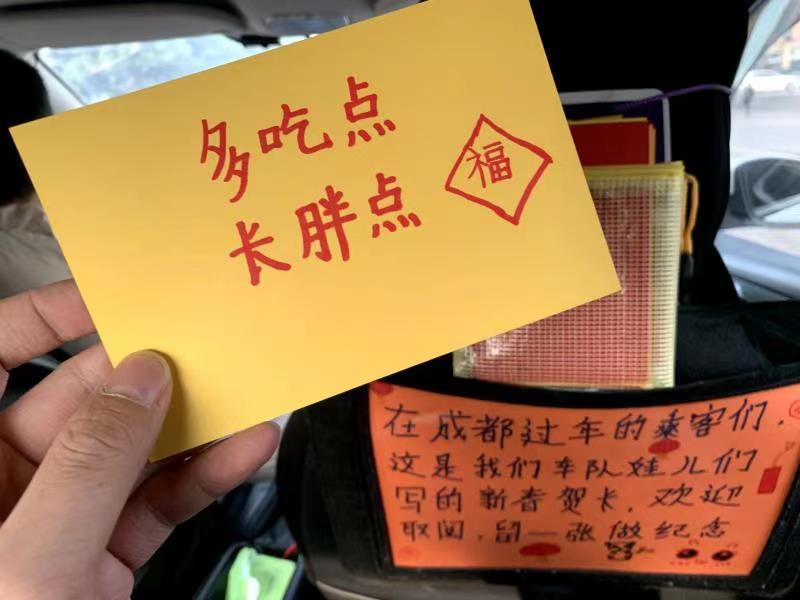 多吃点
长胖点
福
在成都过年的乘客们,
这是我们车队娃儿们
写的新春贺卡,欢迎
取阅,留一张做纪念